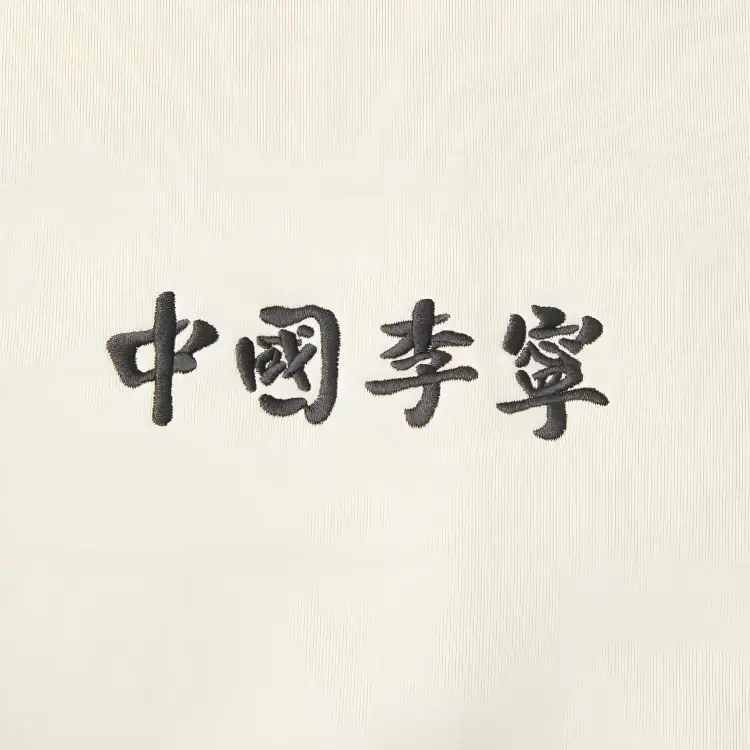 中國李寧